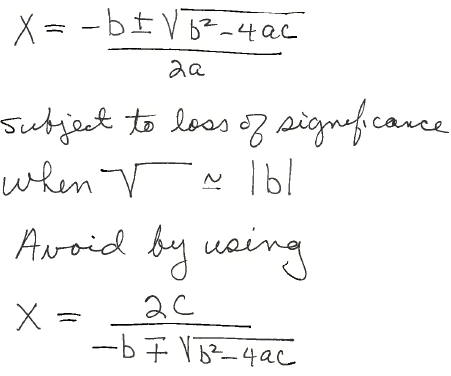 X = -b ± √b²-4ac
2a
subject to loss of significance
when √ ≃ |b|
Avoid by using
X = 2C
-b ∓ √b²-4ac